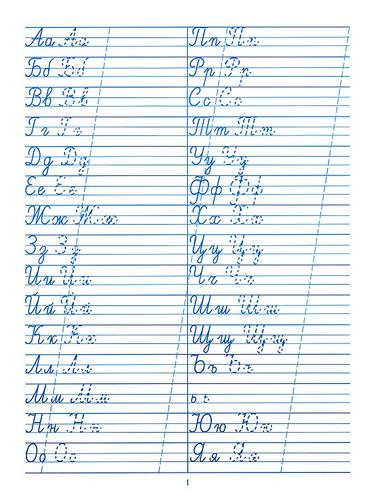 Аа Аа
Бб Бб
Вв Вв
Гг Гг
Дд Дд
Ее Ее
Жж Жж
Зз Зз
Ии Ии
Йй Йй
Кк Кк
Лл Лл
Мм Мм
Нн Нн
Оо Оо
Пп Пп
Рр Рр
Сс Сс
Тт Тт
Уу Уу
Фф Фф
Хх Хх
Цц Цц
Чч Чч
Шш Шш
Щщ Щщ
Ъъ Ъъ
ь ь
Юю Юю
Яя Яя
1